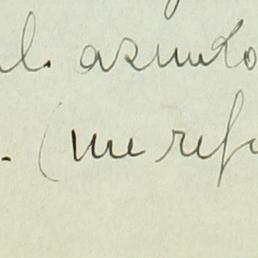 al. asunto
. (me refi